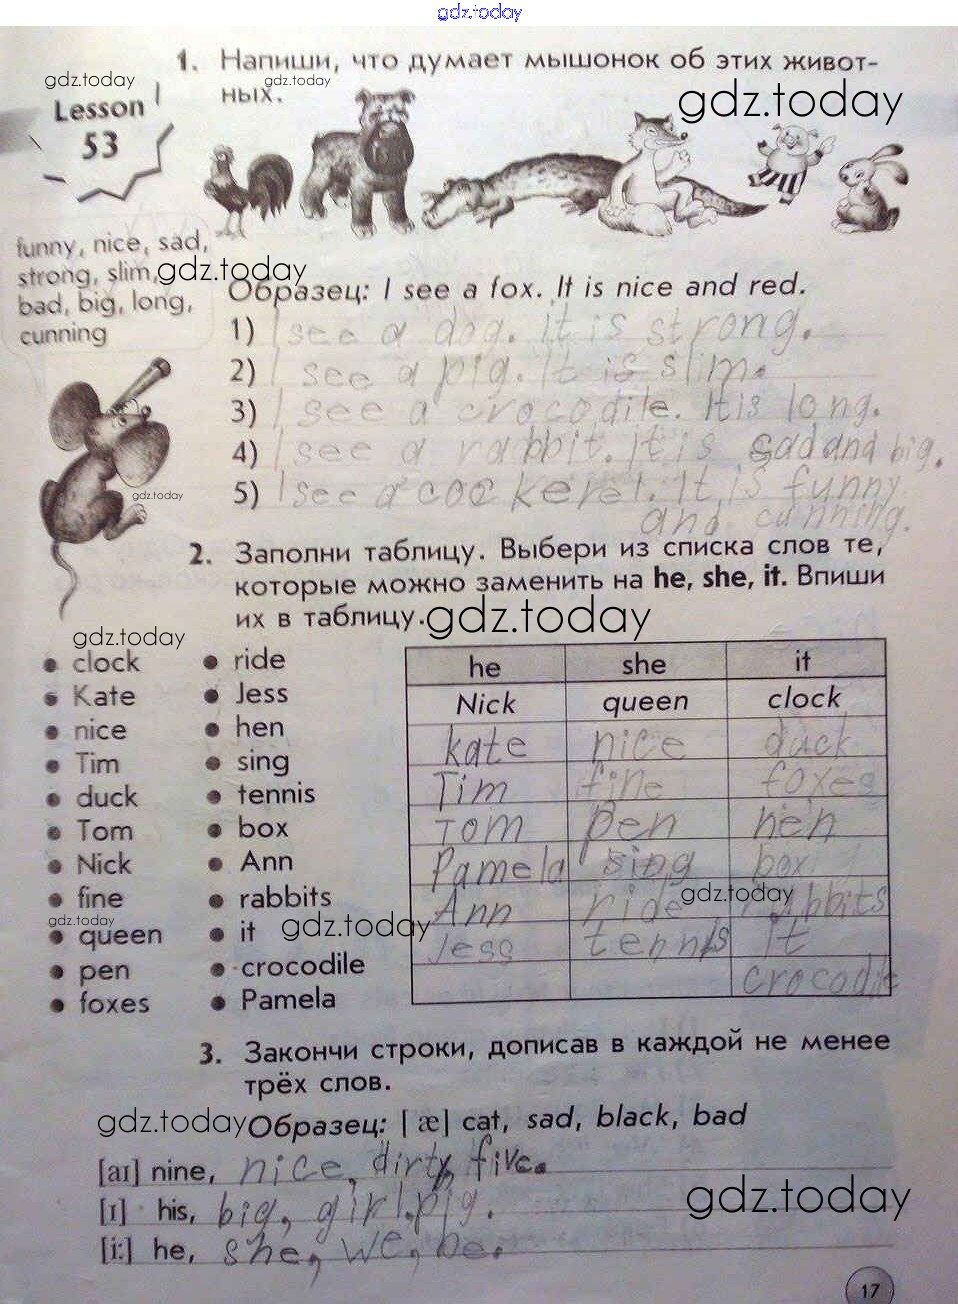 gdz.today
1. Напиши, что думает мышонок об этих живот-
ных.
gdz.today
gdz.today
gdz.today
Lesson
53
funny, nice, sad,
strong, slim,
bad, big, long,
cunning
gdz.today
Образец: I see a fox. It is nice and red.
1) I see a dog. It is strong.
2) I see a pig. It is slim.
3) I see a crocodile. It is long.
4) I see a rabbit. It is sad and big.
5) I see a cockerel. It is funny
and cunning.
gdz.today
2. Заполни таблицу. Выбери из списка слов те,
которые можно заменить на he, she, it. Впиши
их в таблицу.
gdz.today
gdz.today
• clock
• Kate
• nice
• Tim
• duck
• Tom
• Nick
• fine
• queen
• pen
• foxes
• ride
• Jess
• hen
• sing
• tennis
• box
• Ann
• rabbits
• it
• crocodile
• Pamela
gdz.today
gdz.today
he she it
Nick queen clock
Kate nice duck
Tim fine foxes
Tom pen hen
Pamela sing box
Ann ride rabbits
Jess tennis it
crocodile
gdz.today
3. Закончи строки, дописав в каждой не менее
трёх слов.
gdz.today
Образец: [æ] cat, sad, black, bad
[aɪ] nine, nice, dirty, five.
[ɪ] his, big, girl, pig.
[i:] he, she, we, be.
gdz.today
17